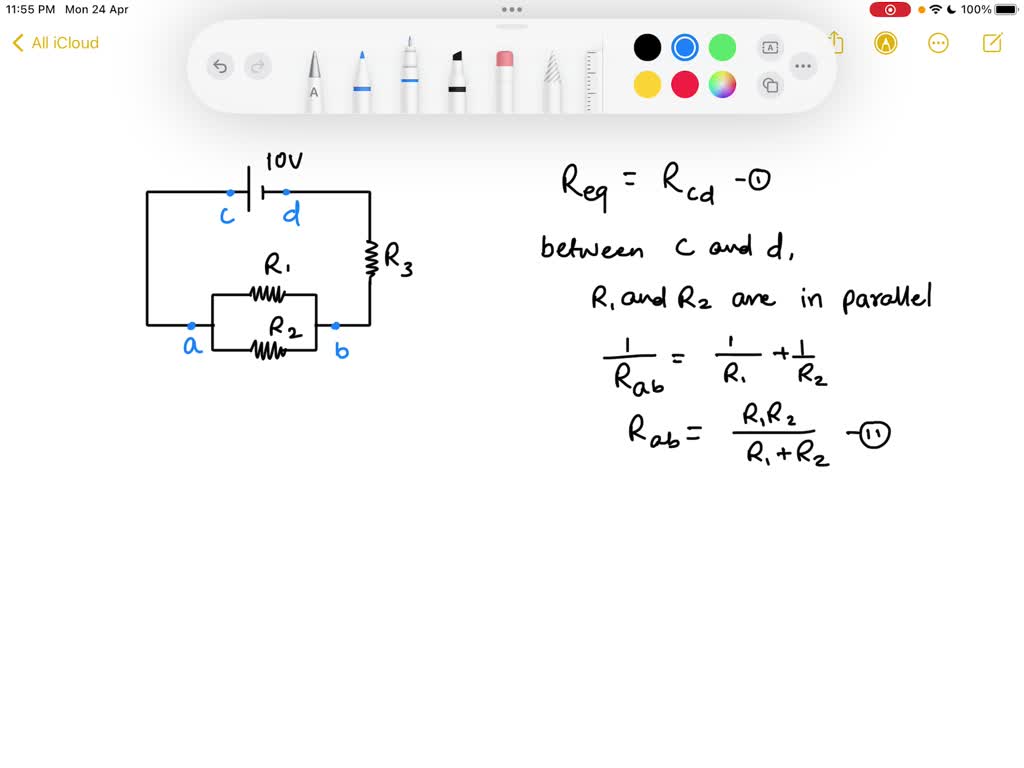 11:55 PM Mon 24 Apr
100%
All iCloud
A
A
10V
c
d
R₁
R₃
R₂
a
b
Req = Rcd -①
between c and d,
R₁ and R₂ are in parallel
1/Rab = 1/R₁ + 1/R₂
Rab = R₁R₂/R₁+R₂ -⑪